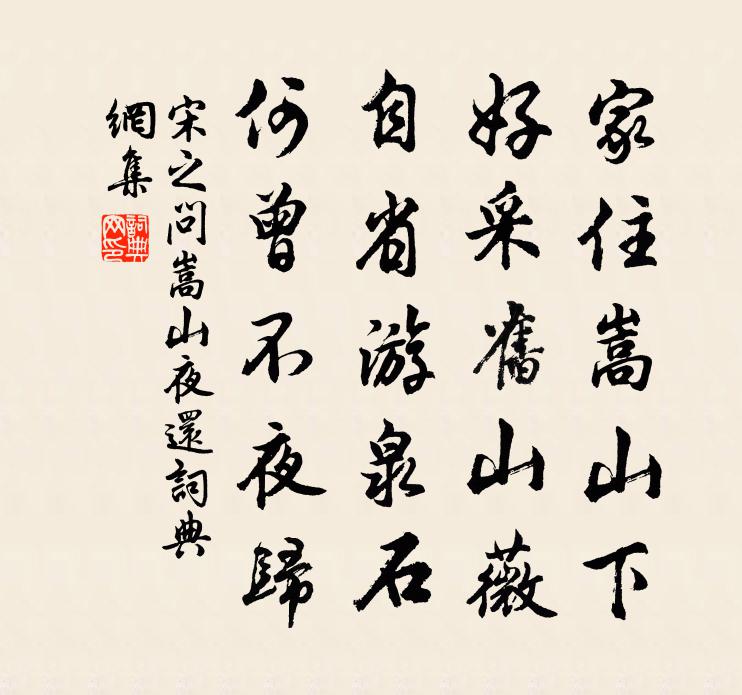 家住嵩山下
好采舊山薇
自省游泉石
何曾不夜歸
宋之问嵩山夜還詞典
網集
詞典
网印